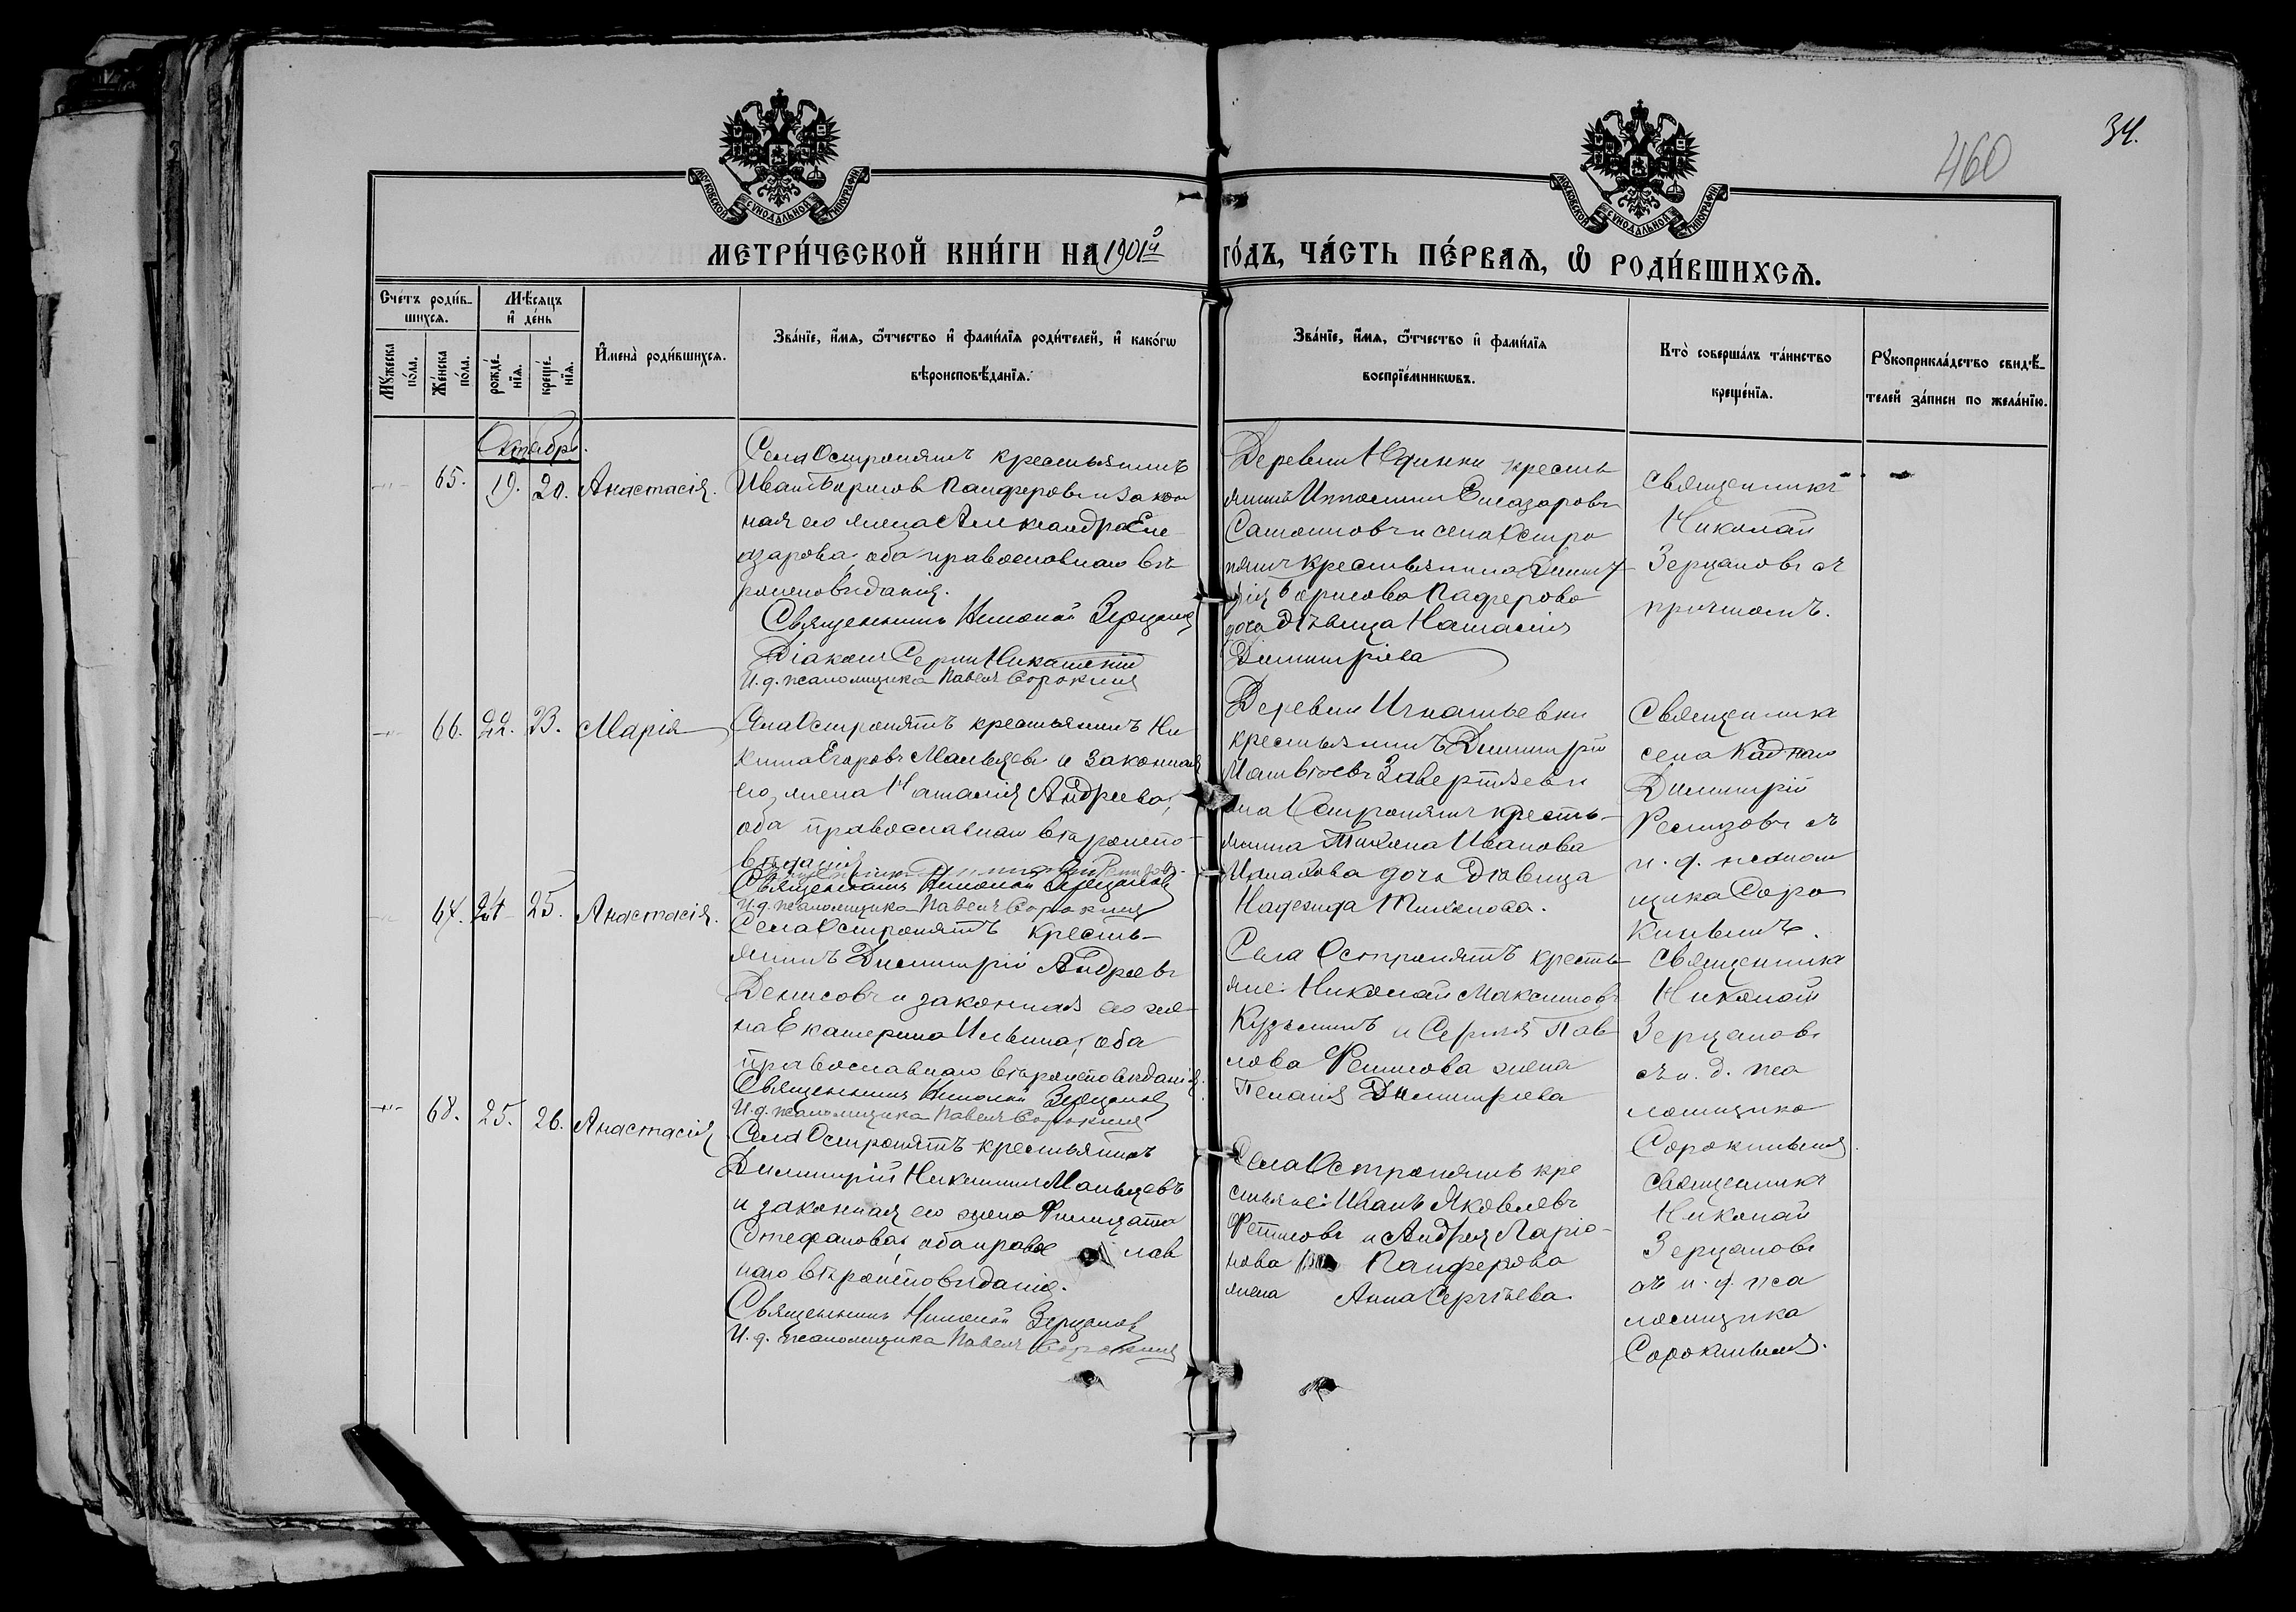 34.
460
МОСКОВСКОЙ СѴНОДАЛЬНОЙ ТИПОГРАФІИ
МОСКОВСКОЙ СѴНОДАЛЬНОЙ ТИПОГРАФІИ
МЕТРИ́ЧЕСКОЙ КНИ́ГИ НА 1901й ГО́ДЪ, ЧА́СТЬ ПЕ́РВАѦ, Ѽ РОДИ́ВШИХСѦ.
Сче́тъ роди́в-
шихсѧ.
Мѣ́сѧцъ
и҆ де́нь
Мꙋ́жеска
по́ла.
Же́нска
по́ла.
рожде́-
нїѧ.
креще́-
нїѧ.
И҆мена̀ роди́вшихсѧ.
Зва́нїе, и҆́мѧ, ѻ҆́тчество и҆ фами́лїѧ роди́телей, и҆ како́гѡ
вѣроисповѣ́данїѧ.
Зва́нїе, и҆́мѧ, ѻ҆́тчество и҆ фами́лїѧ
воспрїе́мникѡвъ.
Кто̀ соверша́лъ та́инство
креще́нїѧ.
Рꙋкоприкла́дство свидѣ́-
телей за́писи по жела́нїю.
Октябрь.
65.
19.
20.
Анастасія.
Села Остропятъ крестьянинъ
Иванъ Борисовъ Панферовъ и закон
ная его жена Александра Еле
азарова, оба православнаго вѣ
роисповѣданія.
Священникъ Николай Зерцаловъ
Діаконъ Сергій Никатскій
И. д. псаломщика Павелъ Сорокинъ
Деревни Юдинки кресть
янинъ Елеазаровъ
Самошовъ и села Остро
пятъ крестьянина Димит
рія Борисова Панферова
дочь дѣвица Наталія
Димитріева
Священникъ
Николай
Зерцаловъ съ
причтомъ.
66.
22.
23.
Марія
Села Остропятъ крестьянинъ Ни
кита Егоровъ Мальцевъ и законная
его жена Наталія Андреева,
оба православнаго вѣроиспо-
вѣданія
Священникъ Димитрій Ремизовъ.
Священникъ Николай Зерцаловъ
И. д. псаломщика Павелъ Сорокинъ
Деревни Игнатьевки
крестьянинъ Димитрій
Матвѣевъ Завертяевъ и
села Остропятъ кресть-
янина Тихона Иванова
дочь дѣвица
Надежда Тихонова.
Священникъ
села
Димитрій
Ремизовъ съ
и. д. псалом
щика Соро
кинымъ.
67.
24
25.
Анастасія.
Села Остропятъ кресть-
янинъ Димитрій Андреевъ
Денисовъ и законная его же-
на Екатерина Ильина, оба
православнаго вѣроисповѣданія.
Священникъ Николай Зерцаловъ
И. д. псаломщика Павелъ Сорокинъ
Села Остропятъ кресть-
яне: Николай Максимовъ
Кузьминъ и Сергія Пав-
лова Фетисова жена
Пелагія Димитріева
Священникъ
Николай
Зерцаловъ
съ и. д. пса
ломщика
Сорокинымъ.
68.
25.
26.
Анастасія
Села Остропятъ крестьянинъ
Димитрій Никитинъ Мальцевъ
и законная его жена Филицата
Стефанова, оба правос лав
наго вѣроисповѣданія.
Священникъ Николай Зерцаловъ
И. д. псаломщика Павелъ Сорокинъ
Села Остропятъ кре
стьяне: Иванъ Яковлевъ
Фетисовъ и Андрея Ларіо-
нова Панферова
жена Анна Сергѣева.
Священникъ
Николай
Зерцаловъ
съ и. д. пса
ломщика
Сорокинымъ.